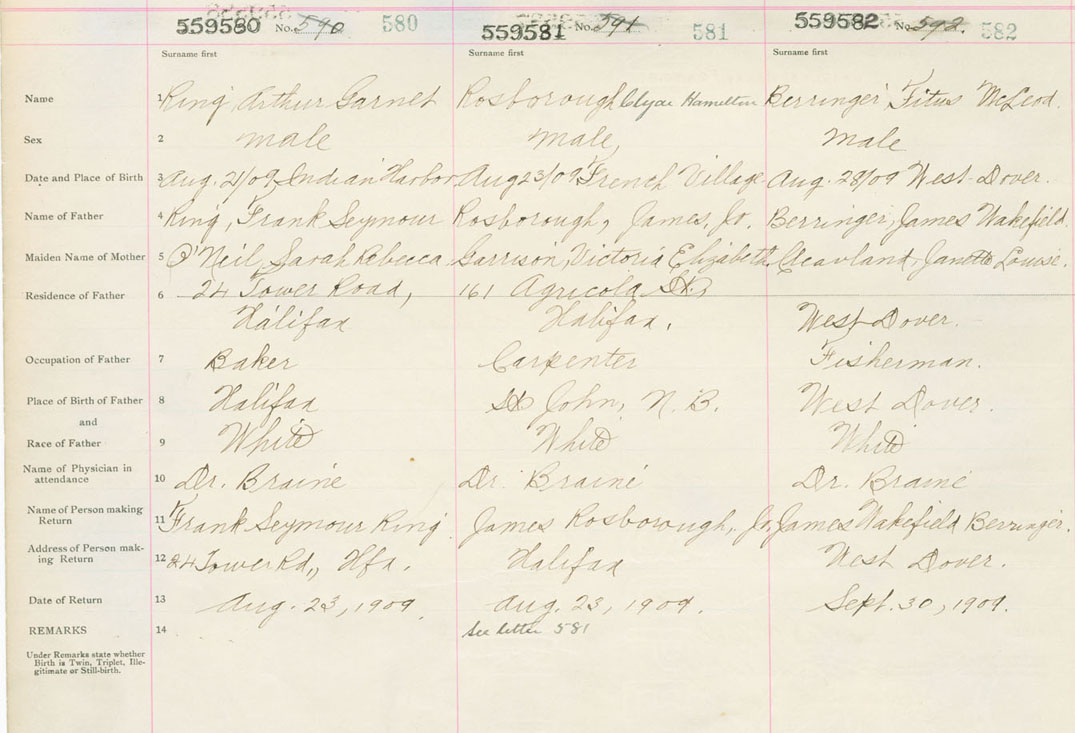 559580 No. 590 580 559581 No. 591 581 559582 No. 592. 582
Surname first Surname first Surname first
Name 1 Ring, Arthur Garnet Rosborough Clyde Hamilton Berringer, Titus McLeod.
Sex 2 male male, male
Date and Place of Birth 3 Aug. 21/09 Indian Harbor Aug 23/09 French Village Aug. 28/09 West-Dover.
Name of Father 4 Ring, Frank Seymour Rosborough, James, Jr. Berringer, James Wakefield.
Maiden Name of Mother 5 O'Neil, Sarah Rebecca Garrison, Victoria Elizabeth Cleavland, Janette Louise.
Residence of Father 6 24 Tower Road, 161 Agricola St.
Halifax Halifax. West Dover.
Occupation of Father 7 Baker Carpenter Fisherman.
Place of Birth of Father 8 Halifax St John, N.B. West Dover.
and
Race of Father 9 White White White
Name of Physician in
attendance 10 Dr. Braine Dr. Braine Dr. Braine
Name of Person making
Return 11 Frank Seymour Ring James Rosborough, Jr. James Wakefield Berringer.
Address of Person mak-
ing Return 12 24 Tower Rd., Hfx. Halifax West Dover.
Date of Return 13 Aug. 23, 1909 Aug. 23, 1909. Sept. 30, 1909.
REMARKS 14 See letter 581
Under Remarks state whether
Birth is Twin, Triplet, Ille-
gitimate or Still-birth.